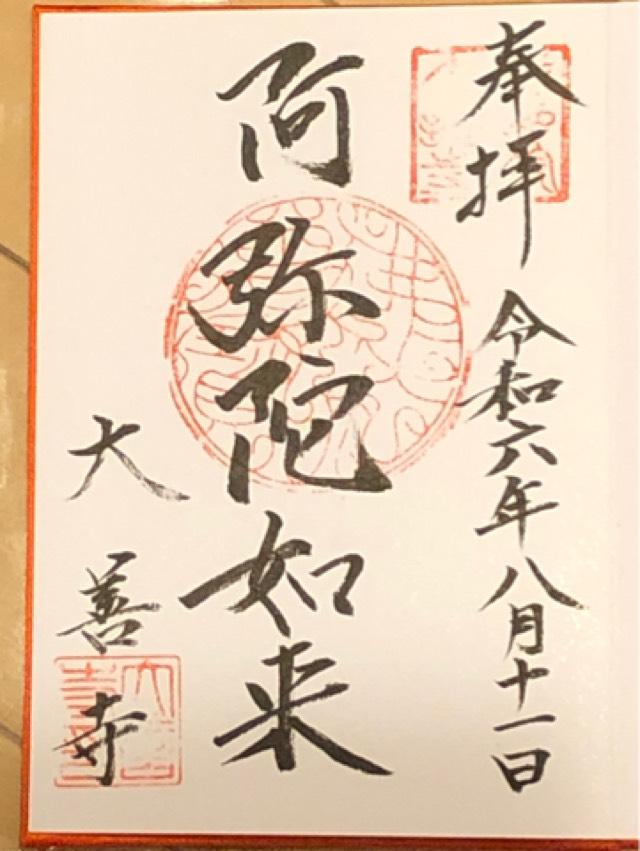 奉拝 令和六年八月十一日
阿弥陀如来
大善寺